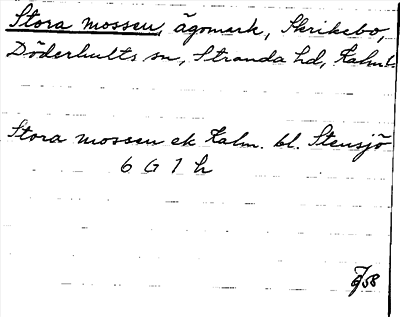 Stora mossen, ägomark, Skrikebo,
Döderhults sn, Stranda hd, Kalm.l.
Stora mossen ek Kalm. bl. Stensjö
6 G 1 h